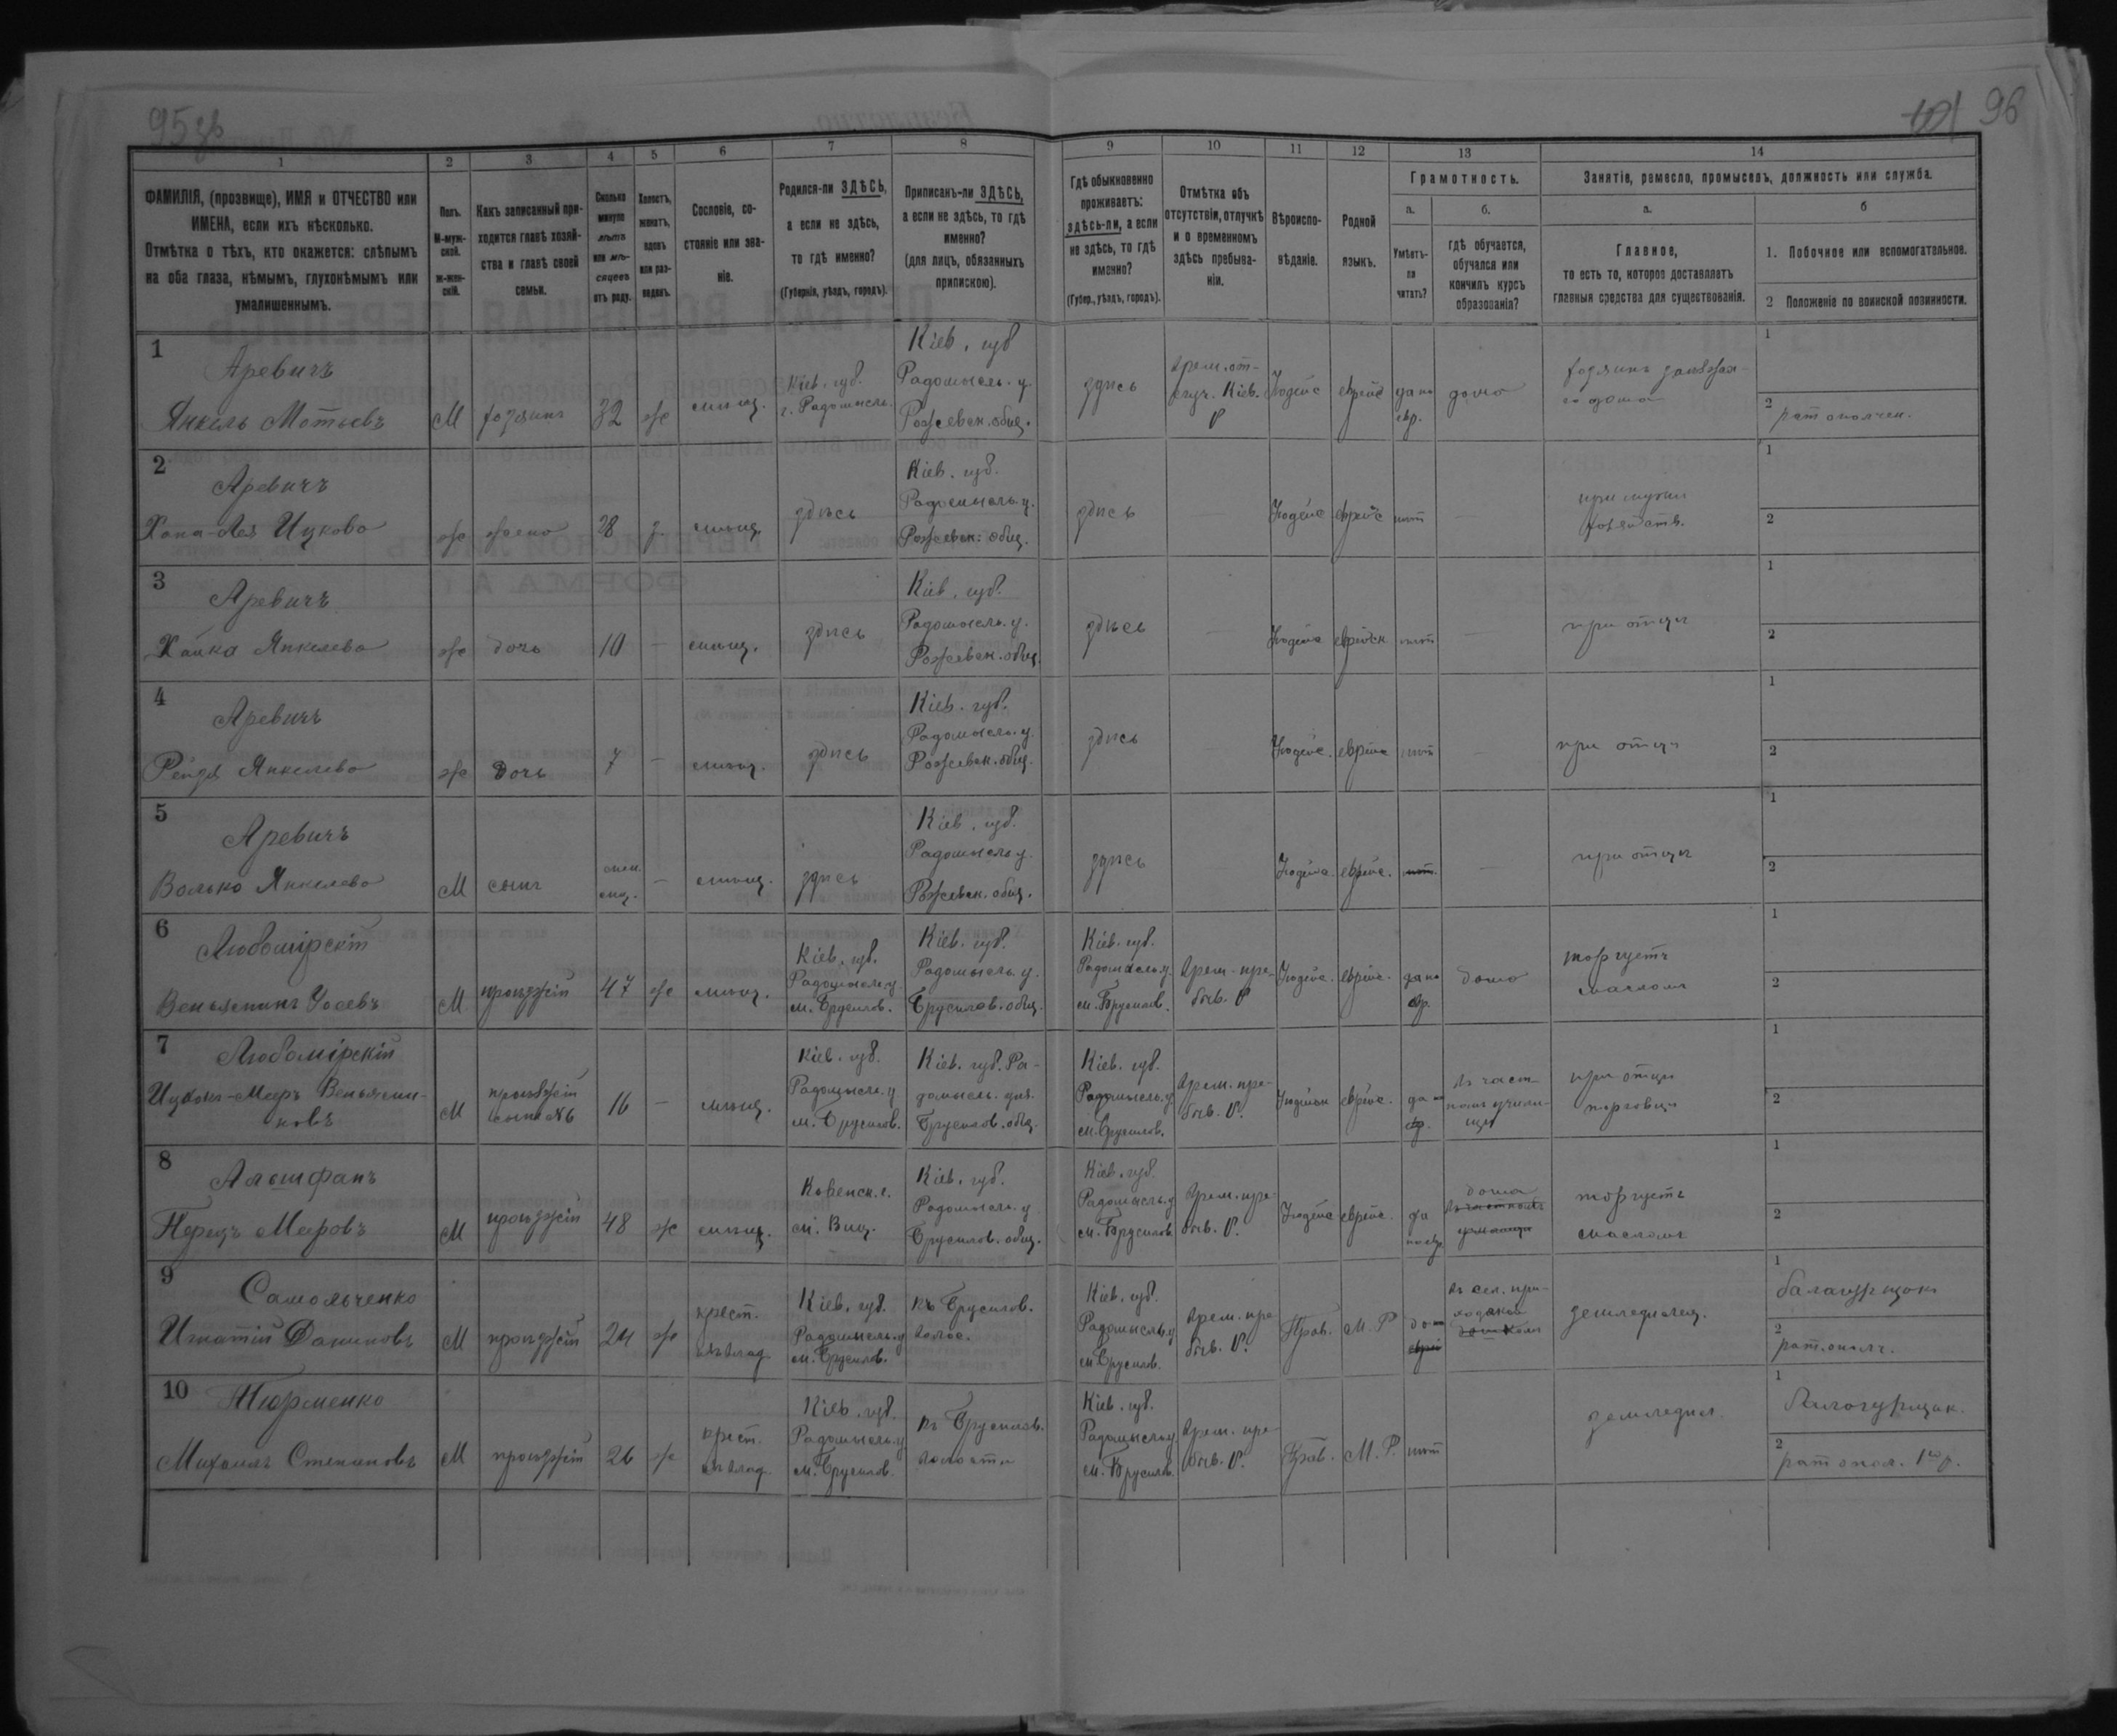 95 зв
96
1
2
3
4
5
6
7
8
9
10
11
12
13
14
ФАМИЛІЯ, (прозвище), ИМЯ и ОТЧЕСТВО или
ИМЕНА, если ихъ нѣсколько.
Отмѣтка о тѣхъ, кто окажется: слѣпымъ
на оба глаза, нѣмымъ, глухонѣмымъ или
умалишеннымъ.
Полъ.
М-муж-
ской.
ж-жен-
скій.
Какъ записанный при-
ходится главѣ хозяй-
ства и главѣ своей
семьи.
Сколько
минуло
лѣтъ
или мѣ-
сяцевъ
отъ роду.
Холостъ,
женатъ,
вдовъ
или раз-
веденъ.
Сословіе, со-
стояніе или зва-
ніе.
Родился-ли ЗДѢСЬ,
а если не здѣсь,
то гдѣ именно?
(Губернія, уѣздъ, городъ).
Приписанъ-ли ЗДѢСЬ,
а если не здѣсь, то гдѣ
именно?
(для лицъ, обязанныхъ
припискою).
Гдѣ обыкновенно
проживаетъ:
здѣсь-ли, а если
не здѣсь, то гдѣ
именно?
(Губер., уѣздъ, городъ).
Отмѣтка объ
отсутствіи, отлучкѣ
и о временномъ
здѣсь пребыва-
ніи.
Вѣроиспо-
вѣданіе.
Родной
языкъ.
Грамотность.
а.
Умѣетъ-
ли
читать?
б.
гдѣ обучается,
обучался или
кончилъ курсъ
образованія?
Занятіе, ремесло, промыселъ, должность или служба.
а.
Главное,
то есть то, которое доставляетъ
главныя средства для существованія.
б
1. Побочное или вспомогательное.
2 Положеніе по воинской повинности.
1
Аревичъ
Янкель Мотьевъ
М
хозяинъ
32
ж
мѣщ.
Кіев. губ.
г. Радомысль
Кіев. губ
Радомысль. у.
Рожевск. общ.
здѣсь
врем. от-
луч. Кіев.
Іюдейс
еврейс
да по
евр.
дома
1
2
рат ополчен.
2
Аревичъ
Хана-Лея Ицкова
ж
жена
28
з.
мѣщ.
здѣсь
Кіев. губ.
Радомысль. у.
Рожевск. общ.
здѣсь
Іюдейс
еврейс
нѣт
при мужѣ
хозяйств.
1
2
3
Аревичъ
Хайка Янкелева
ж
дочь
10
мѣщ.
здѣсь
Кіев. губ.
Радомысль. у.
Рожевск. общ.
здѣсь
Іюдейс
еврейск
нѣт
при отцѣ
1
2
4
Аревичъ
Рейзя Янкелева
ж
дочь
7
мѣщ.
здѣсь
Кіев. губ.
Радомысль. у.
Рожевск. общ.
здѣсь
Іюдейс.
еврейс
нѣт
при отцѣ
1
2
5
Аревичъ
Волько Янкелева
М
сынъ
мѣщ.
здѣсь
Кіев. губ.
Радомысль у.
Рожевск. общ.
здѣсь
Іюдейс.
еврейс.
нѣт.
при отцѣ
1
2
6
Любомірскій
Веньяминъ Іосевъ
М
проѣзжій
47
ж
мѣщ.
Кіев. губ.
Радомысль. у
м. Брусилов.
Кіев. губ.
Радомысль. у.
Брусилов. общ.
Кіев. губ.
Радомысль. у
м. Брусилов.
врем. пре-
быв.
Іюдейс.
еврейс.
да по
евр.
дома
торгуетъ
масломъ
1
2
7
Любомірскій
Ицхокъ-Меер Веньями-
новъ
М
проѣзжій
сынъ №6
16
мѣщ.
Кіев. губ.
Радомысль. у
м. Брусилов.
Кіев. губ. Ра-
домысль. уѣз.
Брусилов. общ.
Кіев. губ.
Радомысль. у
м. Брусилов.
врем. пре-
быв.
Іюдейск
еврейс.
да по
евр.
въ част-
номъ учили-
щѣ
при отцѣ
торговцѣ
1
2
8
Альшфанъ
Перецъ Мееровъ
М
проѣзжій
48
ж
мѣщ.
Кіев. губ.
Радомысль. у
Брусилов. общ.
Кіев. губ.
Радомысль. у
м. Брусилов
врем. пре-
быв.
Іюдейс
еврейс.
да
по евр.
дома
торгуетъ
масломъ
1
2
9
Самойленко
Игнатій Даниловъ
М
проѣзжій
24
ж
крест.
Кіев. губ.
Радомысль. у
м. Брусилов.
къ Брусилов.
волос.
Кіев. губ.
Радомысль. у
м Брусилов.
врем. пре
быв.
Прав.
М. Р
земледѣлец.
1
2
рат. ополч.
10
Тюрменко
Михаилъ Степановъ
М
проѣзжій
26
ж
крест.
Кіев. губ.
Радомысль. у
м. Брусилов.
къ Брусилов.
волости
Кіев. губ.
Радомысль. у
м. Брусилов
врем. пре-
быв.
Прав.
М. Р.
нѣт
земледѣл.
1
2
рат опол. 1го р.